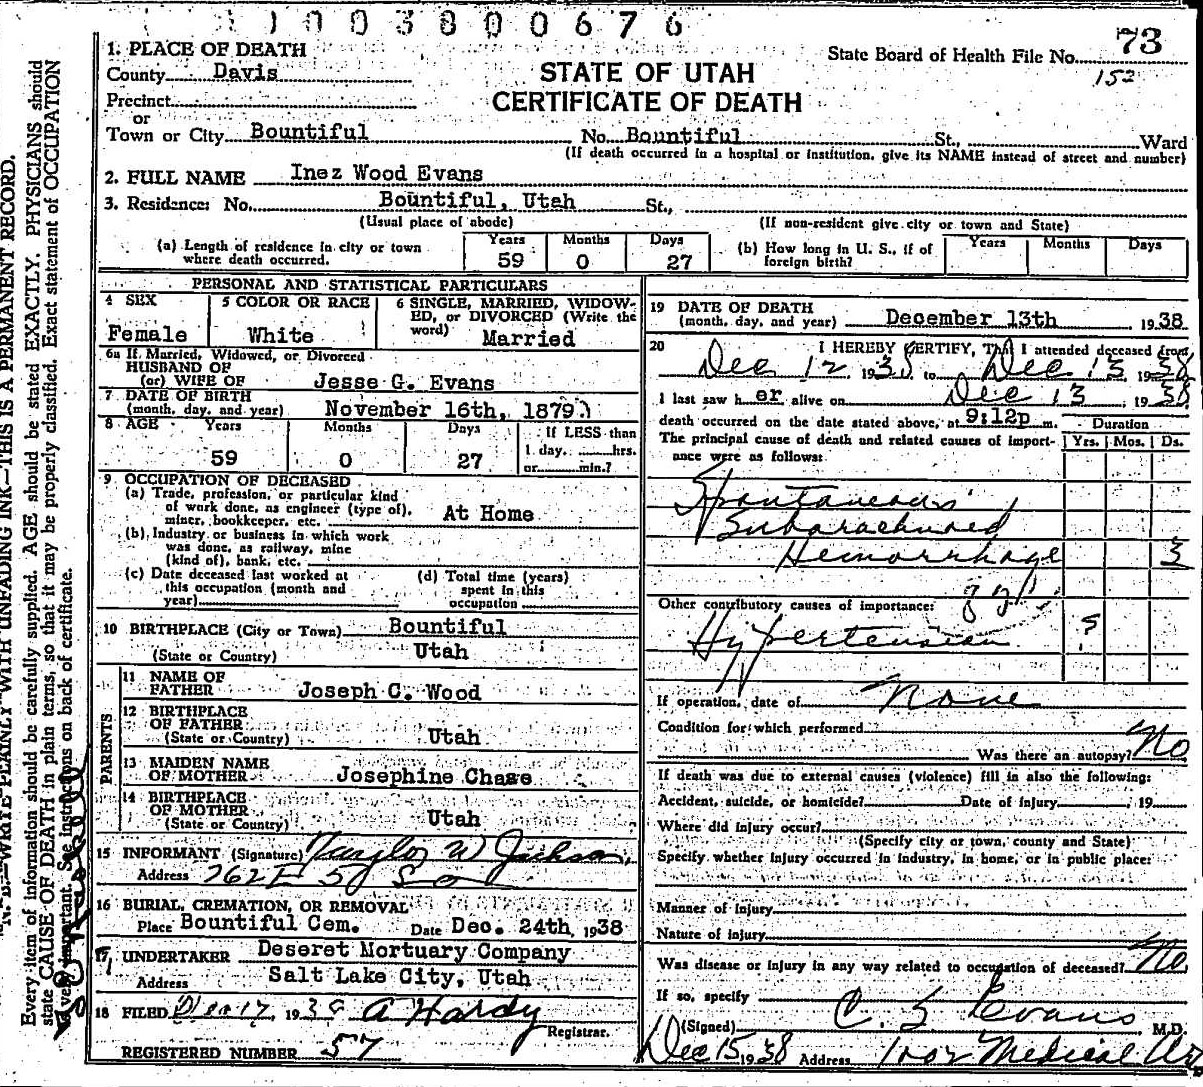 1003800676
1. PLACE OF DEATH
County Davis
State Board of Health File No. 73
152
STATE OF UTAH
CERTIFICATE OF DEATH
Precinct
or
Town or City Bountiful No. Bountiful St., Ward
(If death occurred in a hospital or institution, give its NAME instead of street and number)
2. FULL NAME Inez Wood Evans
3. Residence: No. Bountiful, Utah St.,
(Usual place of abode) (If non-resident give city or town and State)
(a) Length of residence in city or town where death occurred. Years 59 Months 0 Days 27
(b) How long in U. S., if of foreign birth? Years Months Days
PERSONAL AND STATISTICAL PARTICULARS
4 SEX Female
5 COLOR OR RACE White
6 SINGLE, MARRIED, WIDOWED, or DIVORCED (Write the word) Married
6a If Married, Widowed, or Divorced
HUSBAND OF
(or) WIFE OF Jesse G. Evans
7 DATE OF BIRTH
(month, day, and year) November 16th, 1879
8 AGE Years 59 Months 0 Days 27
If LESS than
1 day, hrs.
or min.?
9 OCCUPATION OF DECEASED
(a) Trade, profession, or particular kind
of work done, as engineer (type of),
miner, bookkeeper, etc. At Home
(b) Industry or business in which work
was done, as railway, mine
(kind of), bank, etc.
(c) Date deceased last worked at
this occupation (month and
year)
(d) Total time (years)
spent in this
occupation
10 BIRTHPLACE (City or Town) Bountiful
(State or Country) Utah
PARENTS
11 NAME OF
FATHER Joseph C. Wood
12 BIRTHPLACE
OF FATHER
(State or Country) Utah
13 MAIDEN NAME
OF MOTHER Josephine Chase
14 BIRTHPLACE
OF MOTHER
(State or Country) Utah
15 INFORMANT (Signature) Taylor W Jackson
Address 262 E 5 So
16 BURIAL, CREMATION, OR REMOVAL
Place Bountiful Cem. Date Dec. 24th, 1938
17 UNDERTAKER Deseret Mortuary Company
Address Salt Lake City, Utah
18 FILED Dec 17, 1938 A Hardy
Registrar.
REGISTERED NUMBER 57
19 DATE OF DEATH
(month, day, and year) December 13th 1938
20 I HEREBY CERTIFY, That I attended deceased from
Dec 12 1938 to Dec 13 1938
I last saw her alive on Dec 13 1938
death occurred on the date stated above, at 9:12p m.
Duration
The principal cause of death and related causes of importance were as follows: Yrs. Mos. Ds.
Spontaneous
Subarachnoid
Hemorrhage 3
Other contributory causes of importance:
Hypertension ?
If operation, date of None
Condition for which performed
Was there an autopsy? No
If death was due to external causes (violence) fill in also the following:
Accident, suicide, or homicide? Date of injury, 19
Where did injury occur?
(Specify city or town, county and State)
Specify whether injury occurred in industry, in home, or in public place:
Manner of injury
Nature of injury
Was disease or injury in any way related to occupation of deceased? No
If so, specify
(Signed) C. S Evans M.D.
Dec 15 1938 Address 1002 Medical Arts
N. B.—WRITE PLAINLY WITH UNFADING INK—THIS IS A PERMANENT RECORD.
Every item of information should be carefully supplied. AGE should be stated EXACTLY. PHYSICIANS should
state CAUSE OF DEATH in plain terms, so that it may be properly classified. Exact statement of OCCUPATION
is very important. See instructions on back of certificate.